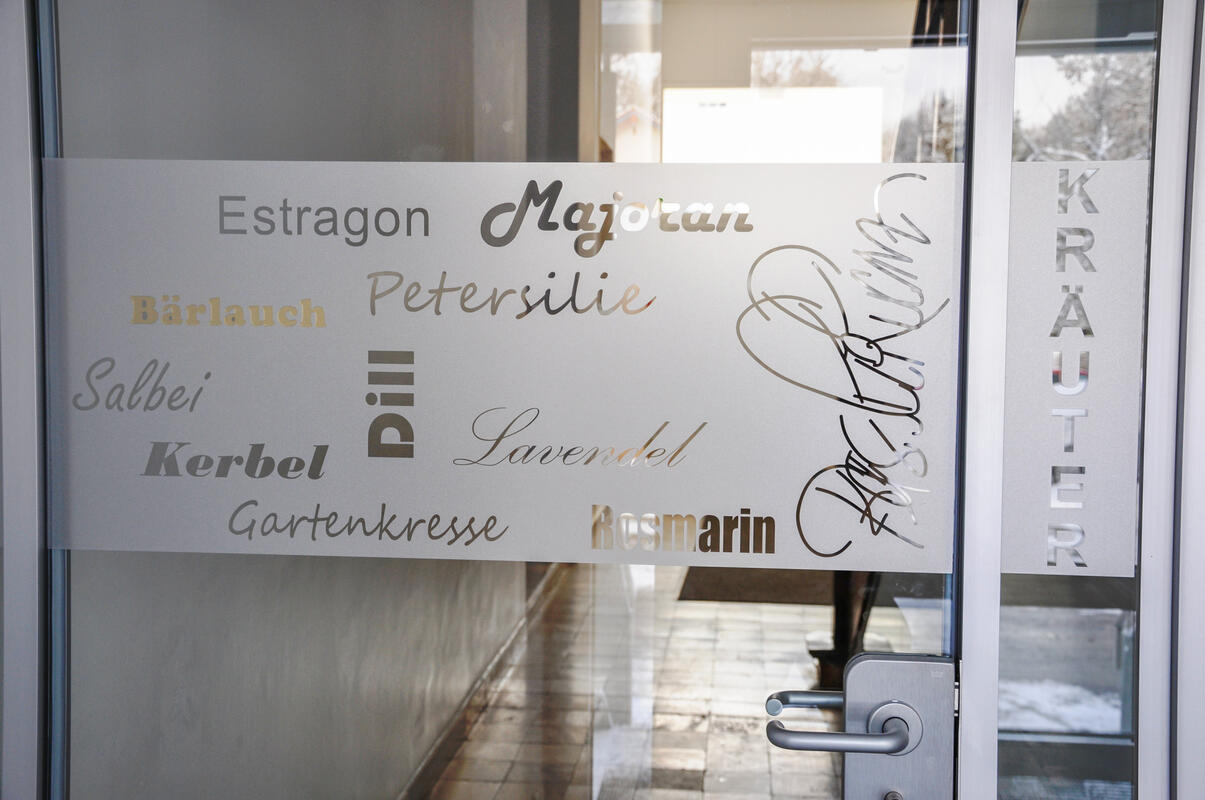 Estragon
Majoran
Petersilie
Bärlauch
Salbei
Dill
Lavendel
Kerbel
Gartenkresse
Rosmarin
KRÄUTER